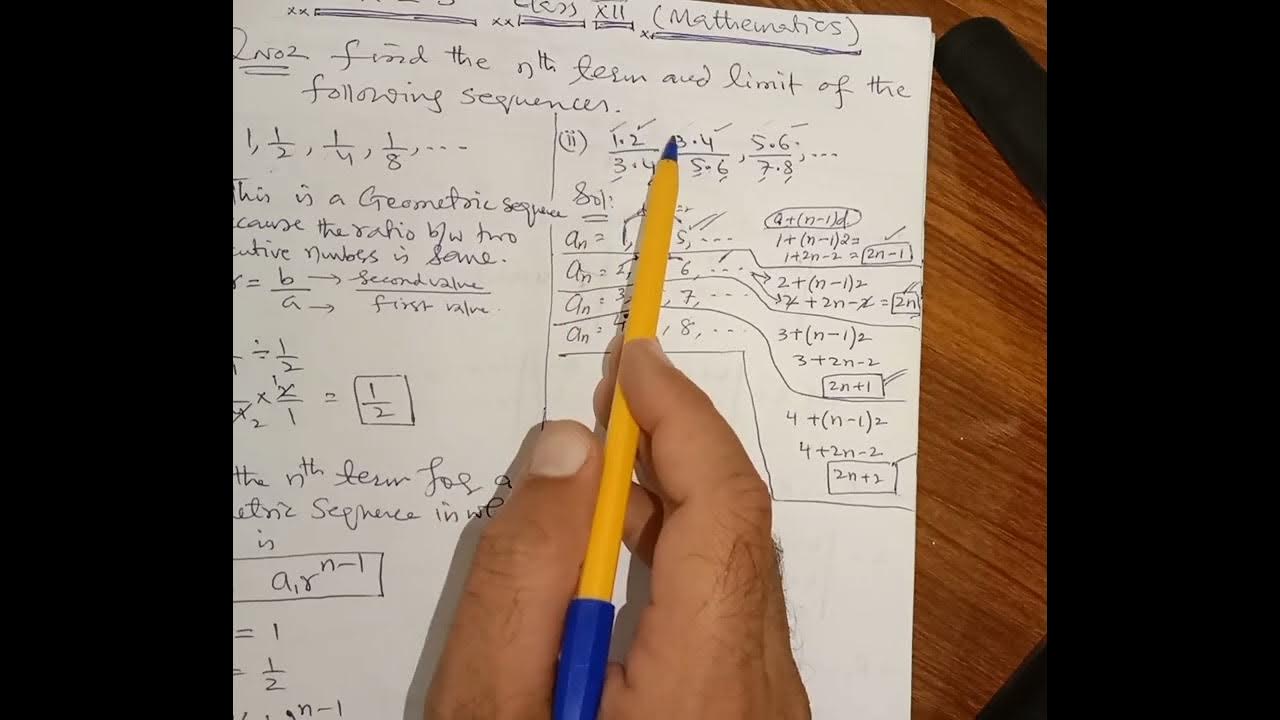 xx xx Class XII x (Mathematics)
QNo2 find the nth term and limit of the
following sequences.
1, 1/2, 1/4, 1/8, ...
This is a Geometric sequence
cause the ratio b/w two
utive numbers is same.
r = b/a → second value / first value.
÷ 1/2
x 2/1 = 1/2
the nth term for a
etric Sequence in
is
a₁rⁿ⁻¹
= 1
= 1/2
n-1
(ii) 1.2/3.4 3.4/5.6, 5.6/7.8, ...
Sol:
an = 1, 5, ...
an = 2, 6, ...
an = 3, 7, ...
an = 4 , 8, ...
a+(n-1)d
1+(n-1)2=
1+2n-2 = 2n-1
2+(n-1)2
2+2n-2 = 2n
3+(n-1)2
3+2n-2
2n+1
4+(n-1)2
4+2n-2
2n+2